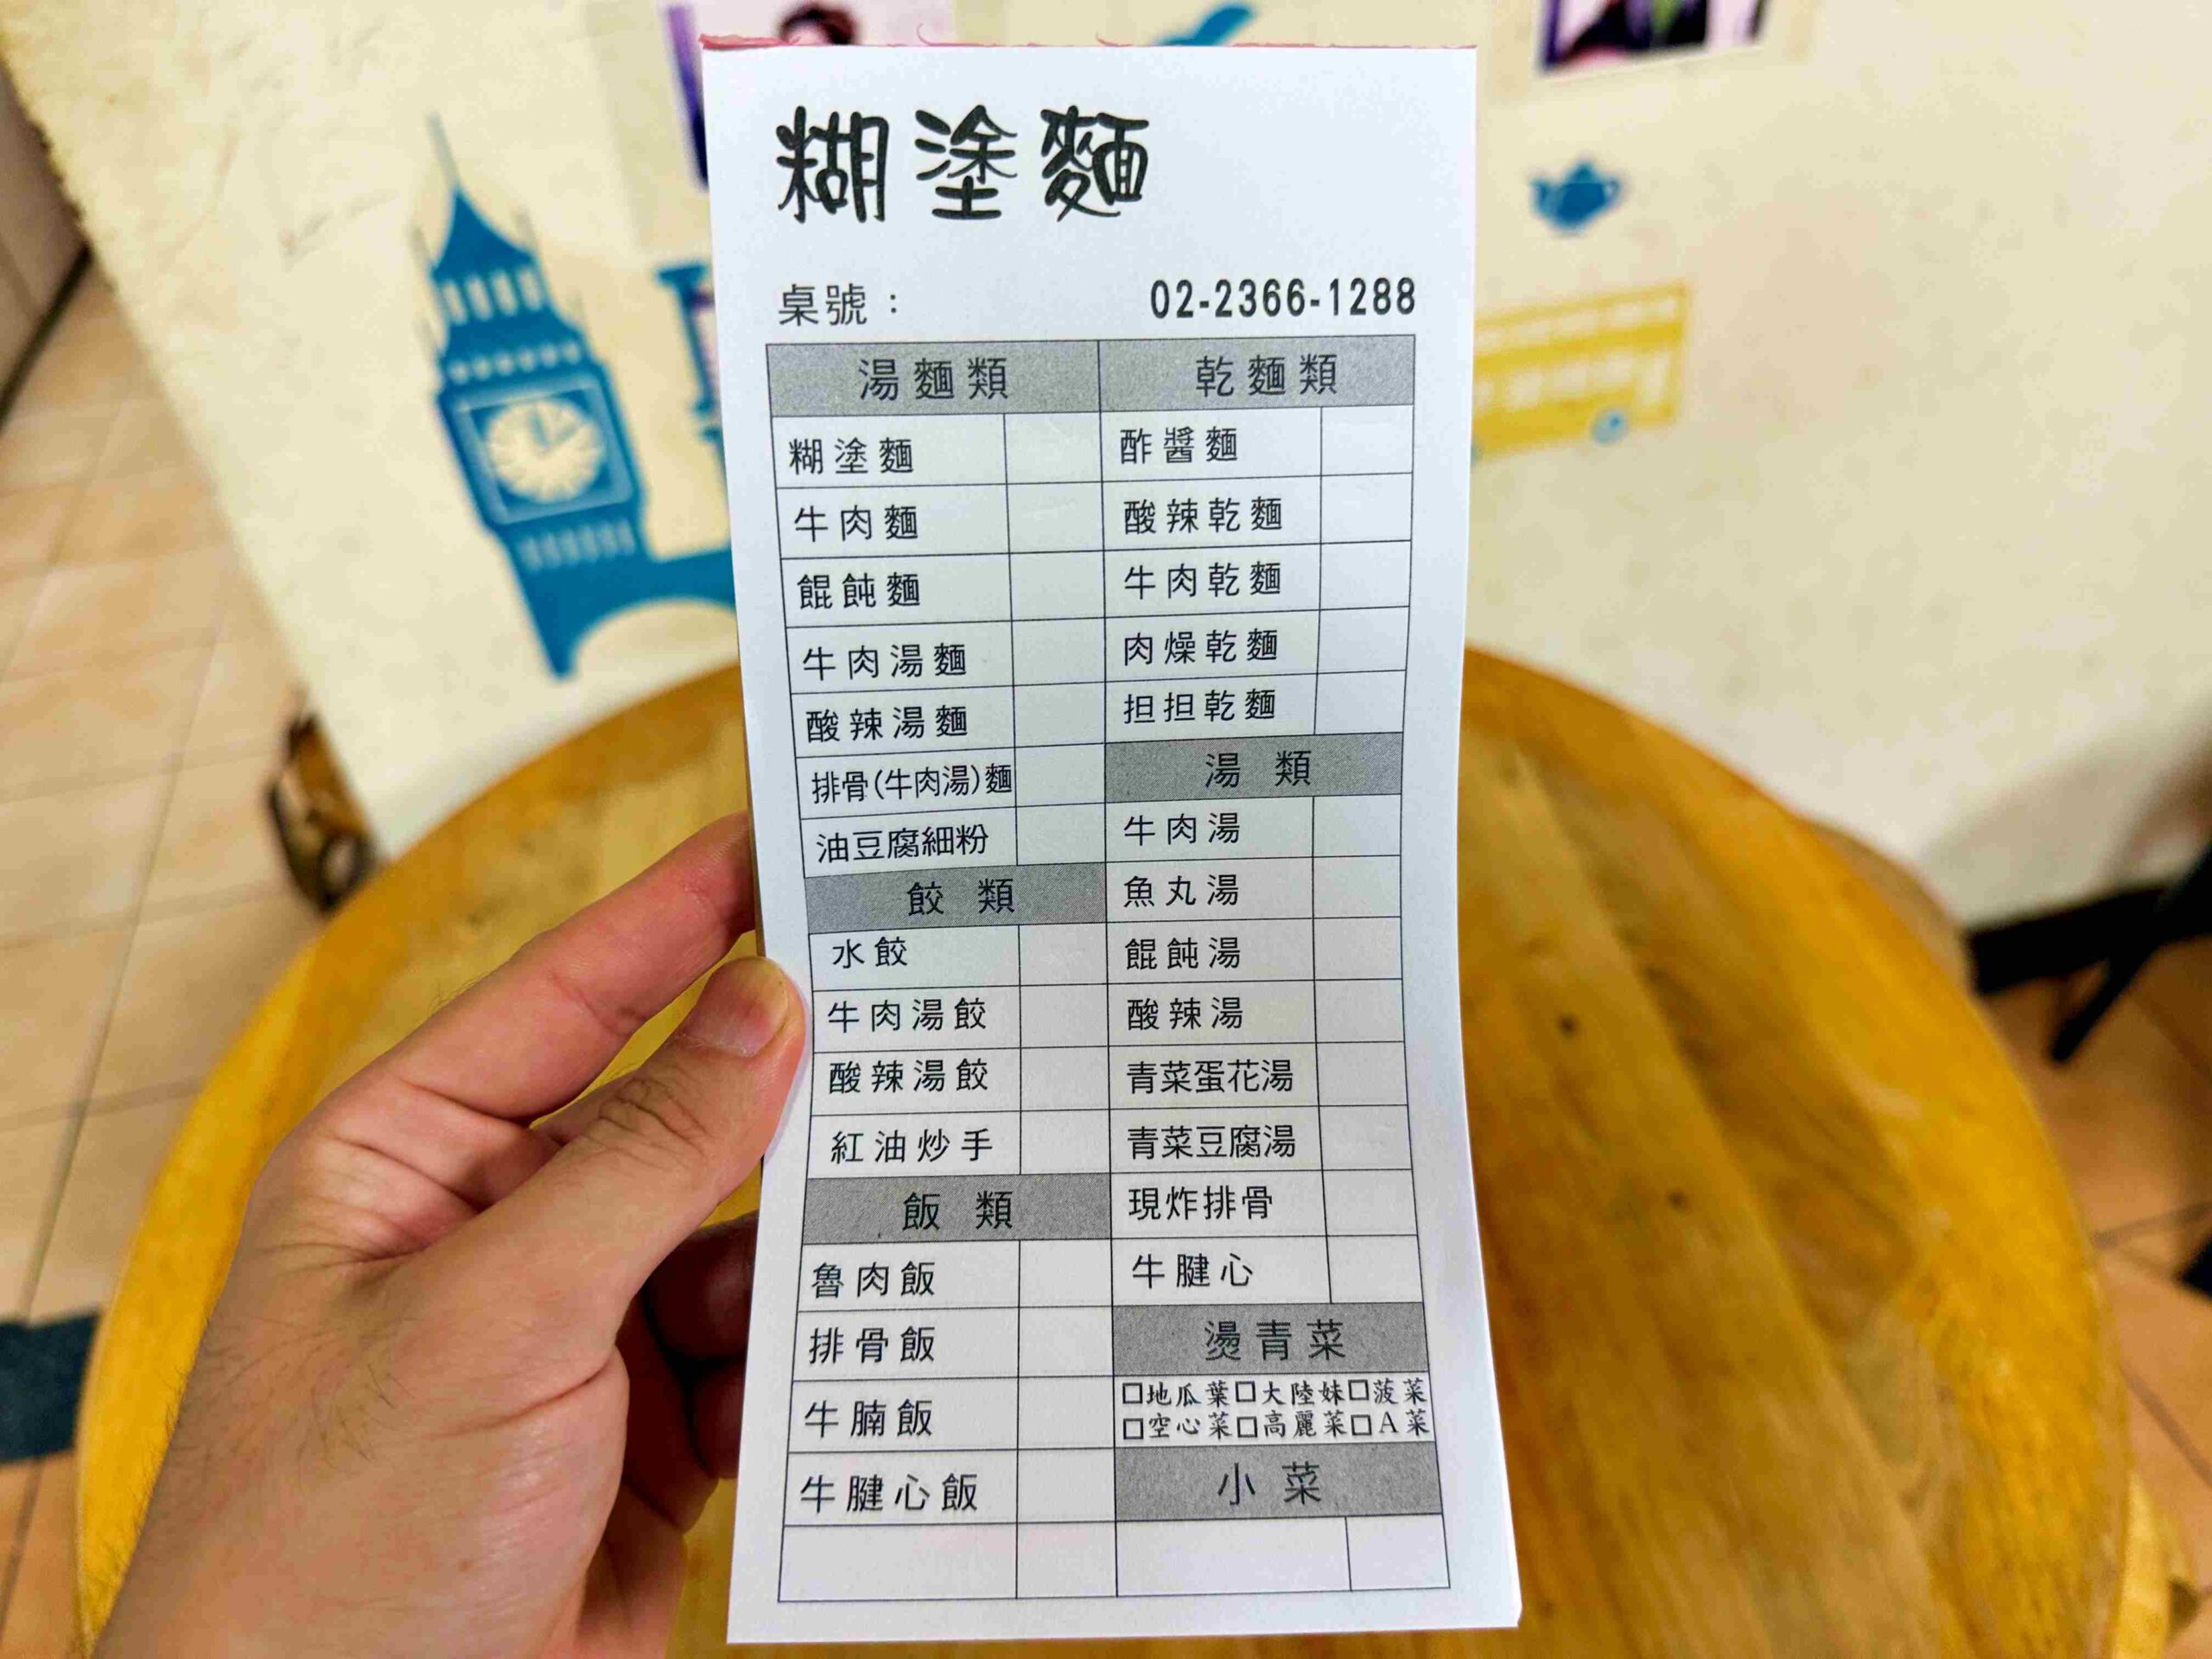 糊塗麵
桌號：
02-2366-1288
湯麵類
糊塗麵
牛肉麵
餛飩麵
牛肉湯麵
酸辣湯麵
排骨(牛肉湯)麵
油豆腐細粉
餃類
水餃
牛肉湯餃
酸辣湯餃
紅油炒手
飯類
魯肉飯
排骨飯
牛腩飯
牛腱心飯
乾麵類
酢醬麵
酸辣乾麵
牛肉乾麵
肉燥乾麵
担担乾麵
湯類
牛肉湯
魚丸湯
餛飩湯
酸辣湯
青菜蛋花湯
青菜豆腐湯
現炸排骨
牛腱心
燙青菜
□地瓜葉□大陸妹□菠菜
□空心菜□高麗菜□A菜
小菜